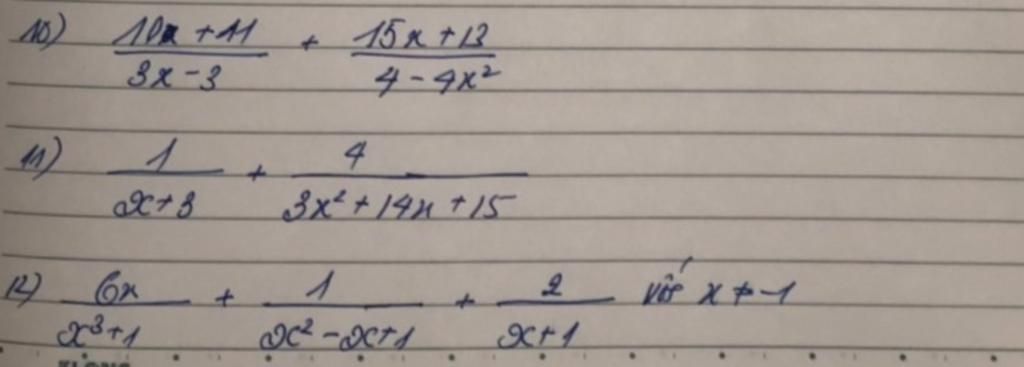 10) (10x + 11)/(3x - 3) + (15x + 13)/(4 - 4x²)
11) 1/(x + 3) + 4/(3x² + 14x + 15)
12) 6x/(x³ + 1) + 1/(x² - x + 1) + 2/(x + 1) với x ≠ -1